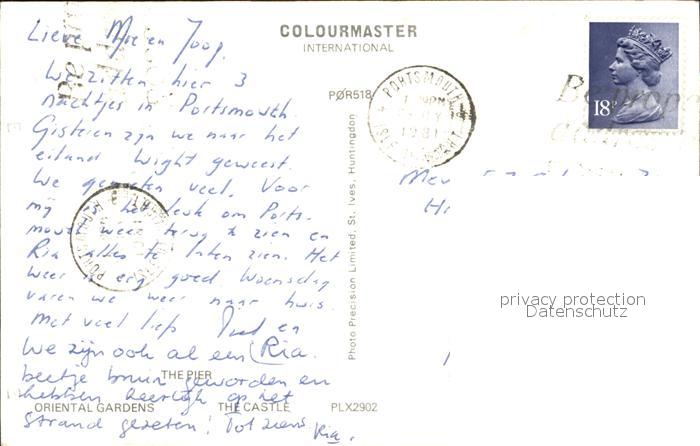 Lieve Mie en Joop,
We zitten hier 3
nachtjes in Portsmouth.
Gisteren zijn we naar het
eiland Wight geweest.
We genieten veel. Voor
mij is het leuk om Ports-
mouth weer terug te zien en
Ria alles te laten zien. Het
weer is erg goed. Woensdag
varen we weer naar huis.
Met veel liefs en
Ria.
We zijn ook al een
beetje bruin geworden en
hebben heerlijk op het
strand gezeten! Tot ziens
Ria.
COLOURMASTER
INTERNATIONAL
PØR518
Photo Precision Limited, St. Ives, Huntingdon
THE PIER
ORIENTAL GARDENS THE CASTLE PLX2902
PORTSMOUTH
1981
ISLE OF WIGHT
18P
Be prope
privacy protection
Datenschutz